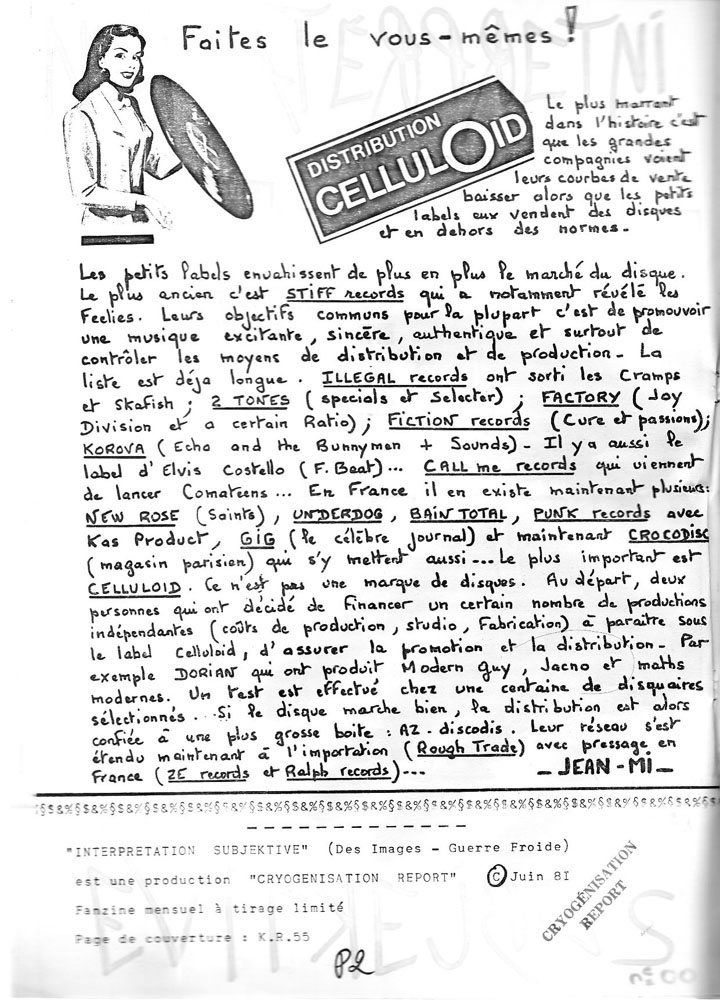 Faites le vous-mêmes !
DISTRIBUTION
CELLULOID
Le plus marrant
dans l'histoire c'est
que les grandes
compagnies voient
leurs courbes de vente
baisser alors que les petits
labels eux vendent des disques
et en dehors des normes.
Les petits labels envahissent de plus en plus le marché du disque.
Le plus ancien c'est STIFF records qui a notamment révélé les
Feelies. Leurs objectifs communs pour la plupart c'est de promouvoir
une musique excitante, sincère, authentique et surtout de
contrôler les moyens de distribution et de production. La
liste est déja longue. ILLEGAL records ont sorti les Cramps
et Skafish ; 2 TONES (specials et Selecter) ; FACTORY (Joy
Division et a certain Ratio) ; FICTION records (Cure et passions);
KOROVA (Echo and the Bunnymen + Sounds) - Il y a aussi le
label d'Elvis Costello (F. Beat)... CALL me records qui viennent
de lancer Comateens... En France il en existe maintenant plusieurs:
NEW ROSE (Saints), UNDERDOG, BAIN TOTAL, PUNK records avec
Kas Product, GIG (le célèbre journal) et maintenant CROCODISC
(magasin parisien) qui s'y mettent aussi... Le plus important est
CELLULOID. Ce n'est pas une marque de disques. Au départ, deux
personnes qui ont décidé de financer un certain nombre de productions
indépendantes (coûts de production, studio, fabrication) à paraître sous
le label Celluloid, d'assurer la promotion et la distribution. Par
exemple DORIAN qui ont produit Modern Guy, Jacno et maths
modernes. Un test est effectué chez une centaine de disquaires
sélectionnés... Si le disque marche bien, la distribution est alors
confiée à une plus grosse boite : AZ - discodis. Leur réseau s'est
étendu maintenant à l'importation (Rough Trade) avec pressage en
France (ZE records et Ralph records)...
_JEAN-MI_
§$&%§$&%§$&%§$&%§$&%§$&%§$&%§$&%§$&%§$&%§$&%§$&%§$&%§$&%§$&%§$&%
"INTERPRETATION SUBJEKTIVE" (Des Images - Guerre Froide)
est une production "CRYOGENISATION REPORT" © Juin 8I
Fanzine mensuel à tirage limité
Page de couverture : K.R.55
CRYOGÉNISATION
REPORT
P2